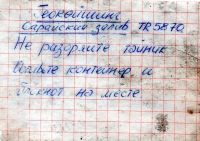 Геокейшинг
Сарайский залив TR 5870
Не разоряйте тайник
Оставьте контейнер и
блокнот на месте